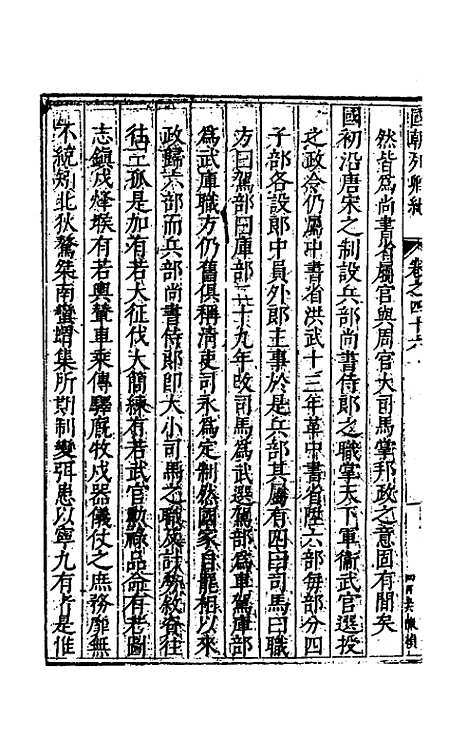 國朝列卿紀
卷之四十六
然皆為尚書省屬官與周官大司馬掌邦政之意固有間矣
國初沿唐宋之制設兵部尚書侍郎之職掌天下軍衛武官選授
之政令仍屬中書省洪武十三年革中書省陞六部每部分四
子部各設郎中員外郎主事於是兵部其屬有四曰司馬曰職
方曰駕部曰庫部二十九年改司馬為武選駕部為車駕庫部
為武庫職方仍舊俱稱清吏司永為定制然國家自龍相以來
政歸六部而兵部尚書侍郎即大小司馬之職及計務敘資往
往三孤是加有若大征伐大簡練有若武官勳祿品命有若圖
志鎮戍烽堠有若輿輦車乘傳驛廐牧戍器儀仗之庶務靡無
不統矧北狄驁桀南蠻蝟集所期制變弭患以寧九有者是惟